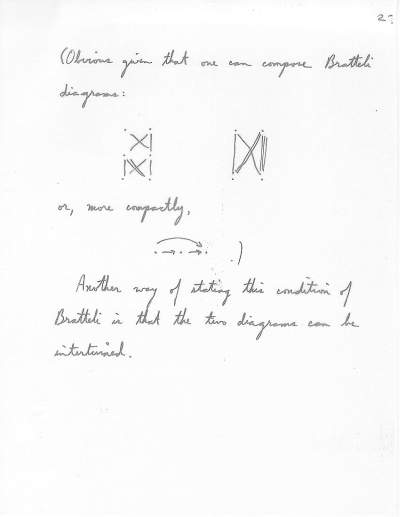 2
(Obvious given that one can compose Bratteli
diagrams:
or, more compactly,
.)
Another way of stating this condition of
Bratteli is that the two diagrams can be
intertwined.